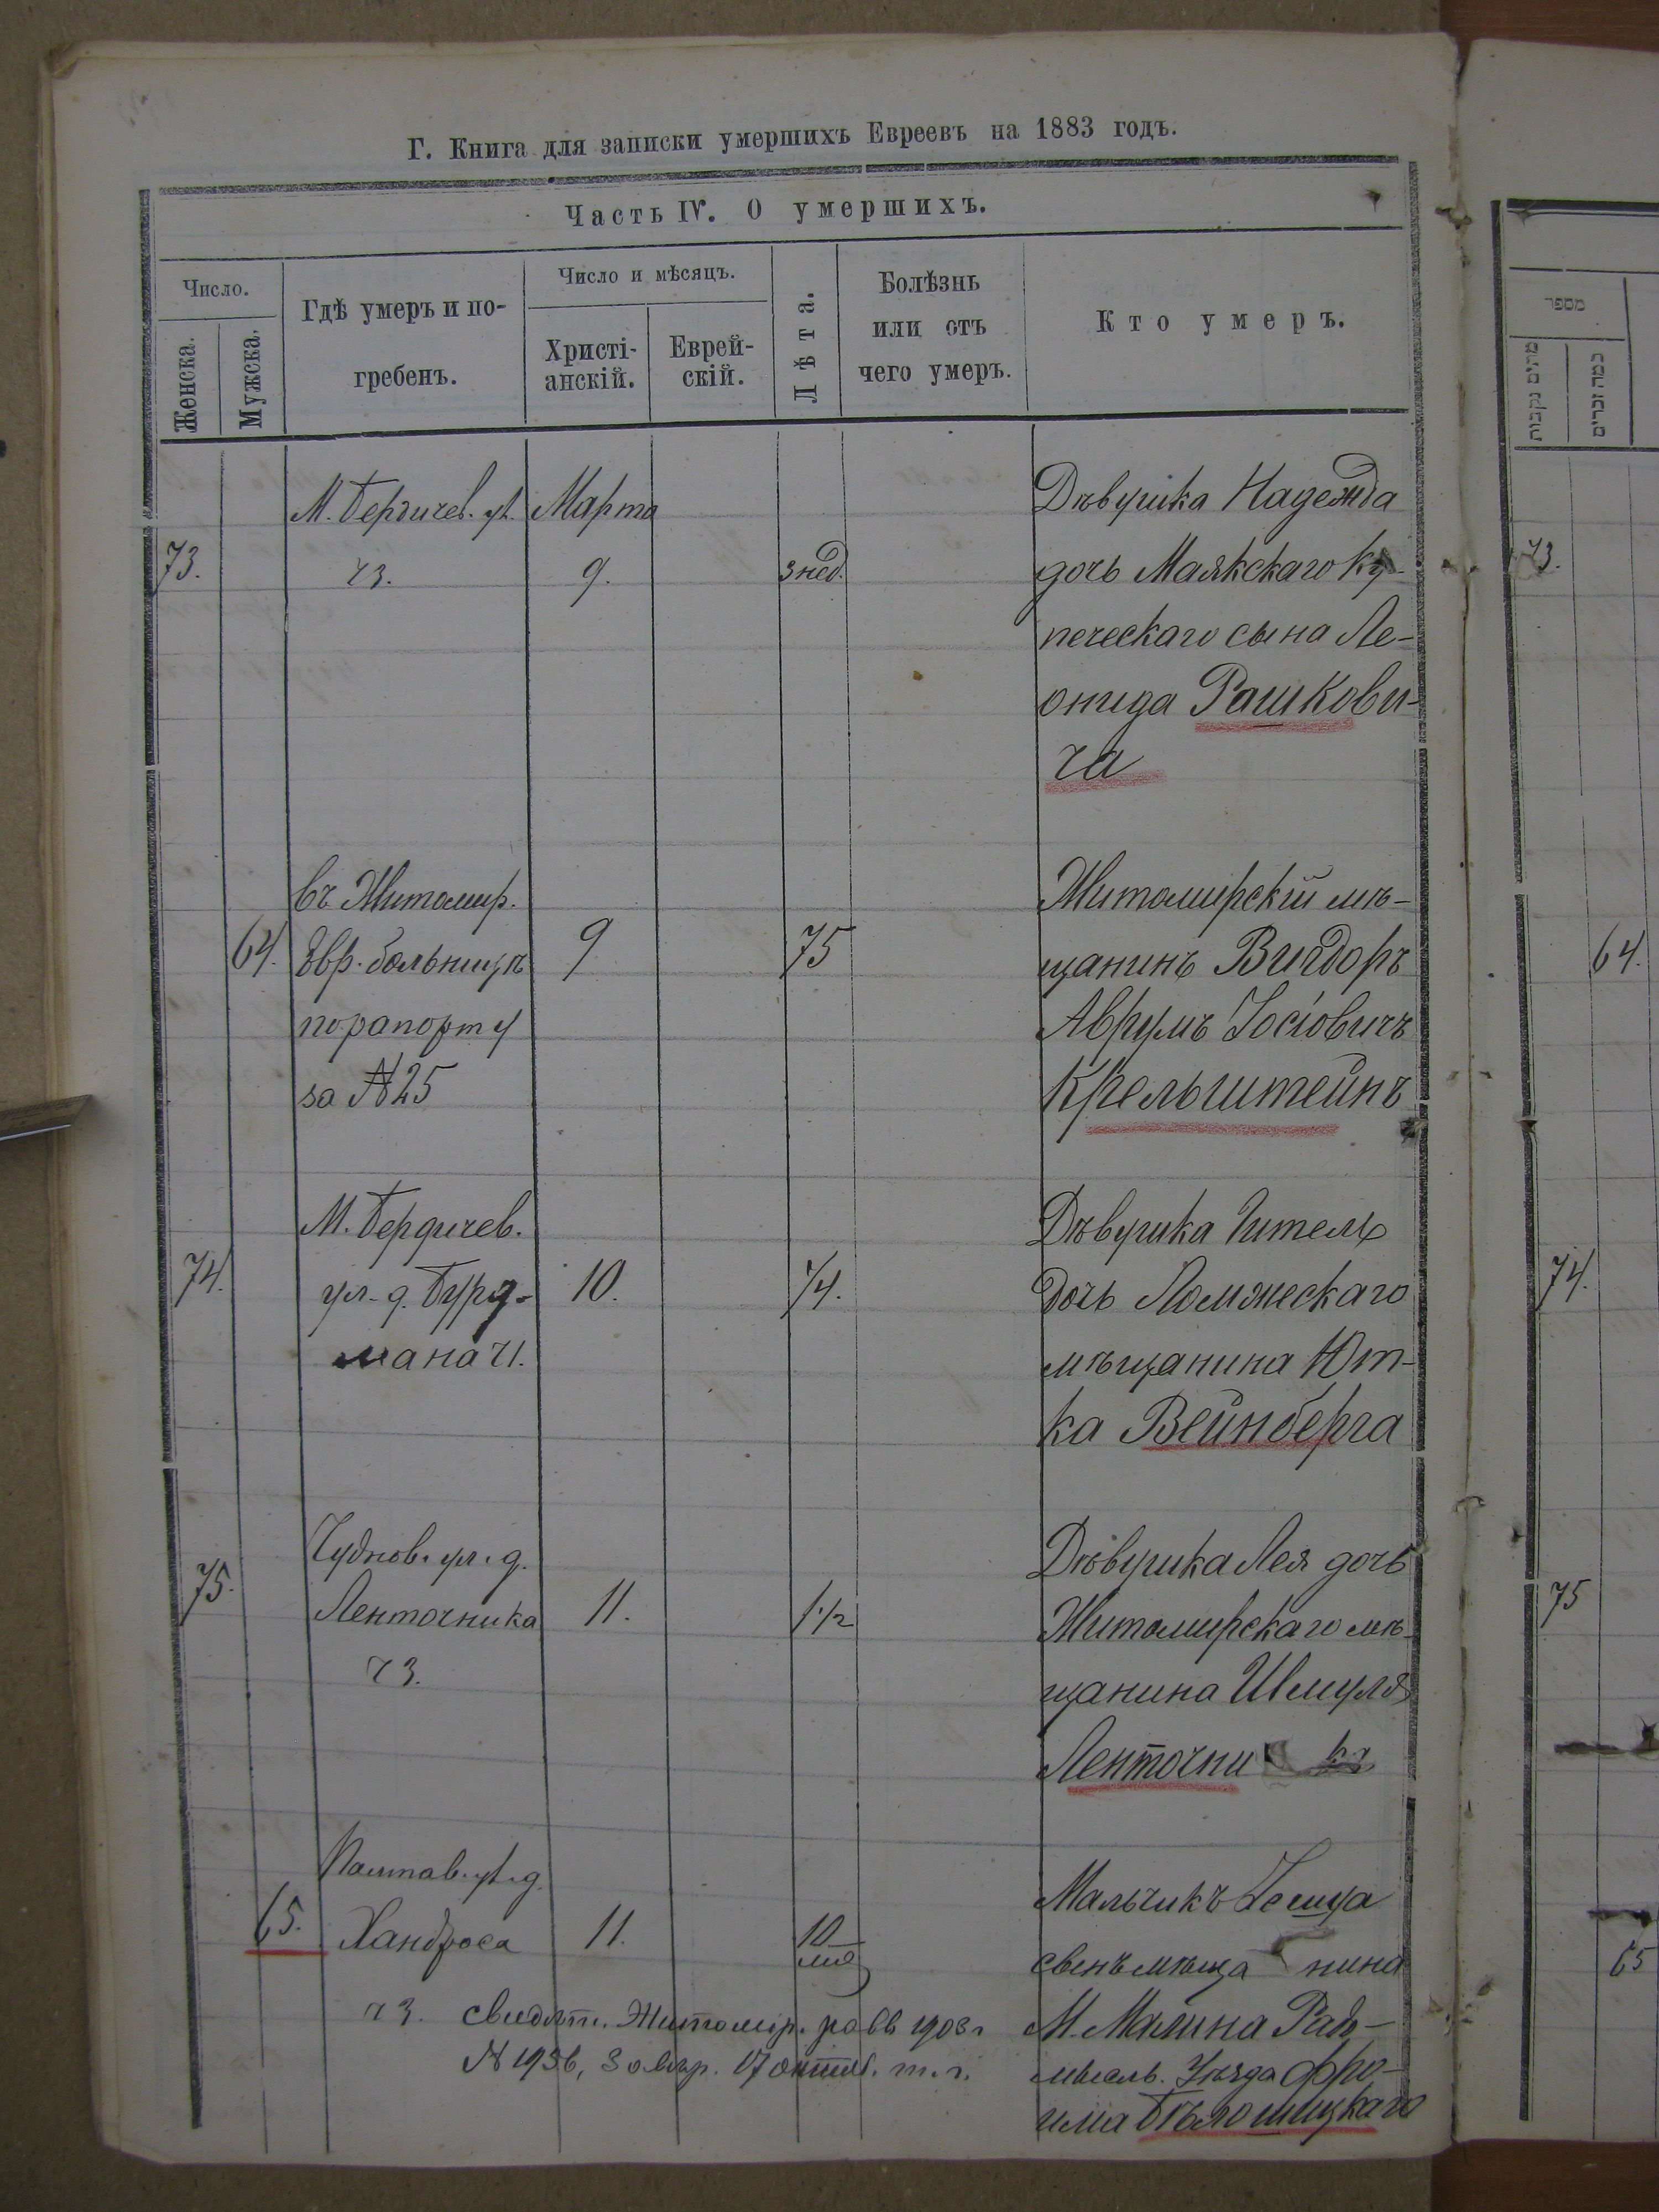 Г. Книга для записки умершихъ Евреевъ на 1883 годъ.
Часть IV. О умершихъ.
Число.
Женска.
Мужска.
Гдѣ умеръ и по-
гребенъ.
Число и мѣсяцъ.
Христі-
анскій.
Еврей-
скій.
Лѣта.
Болѣзнь
или отъ
чего умеръ.
Кто умеръ.
73.
М. Бердичев. ул.
ч 3.
Марта
9.
3 нед.
Дѣвушка Надежда
дочь Маякскаго Ку-
печескаго сына Ле-
онида Рашкови-
ча
64.
въ Житомир.
Евр. больницѣ
по рапорту
за № 25
9
75
Житомирскій мѣ-
щанинъ Вигдоръ
Аврумъ Іосіовичъ
Крельштейнъ
74.
М. Бердичев.
ул. д. Бурд-
мана ч 1.
10.
1/4.
Дѣвушка Гитель
дочь Ломжескаго
мѣщанина Ют-
ка Вейнберга
75.
Чуднов. ул. д.
Ленточника
ч 3.
11.
1 1/2
Дѣвушка Лея дочь
Житомирскаго мѣ-
щанина Шмуля
Ленточника
65.
Полтав. ул. д.
Хандроса
ч 3.
11.
10
мѣс
Мальчикъ
сынъ мѣщанина
М. Малина Радо-
мысль. Уѣзда Фро-
има Бѣлошицкаго
свидѣт. Житомір. равв 1903 г
№ 1936, 30 17 октяб. т. г.
מספר
מתים נקבות
כמה זכרים
73.
64.
74.
75
65